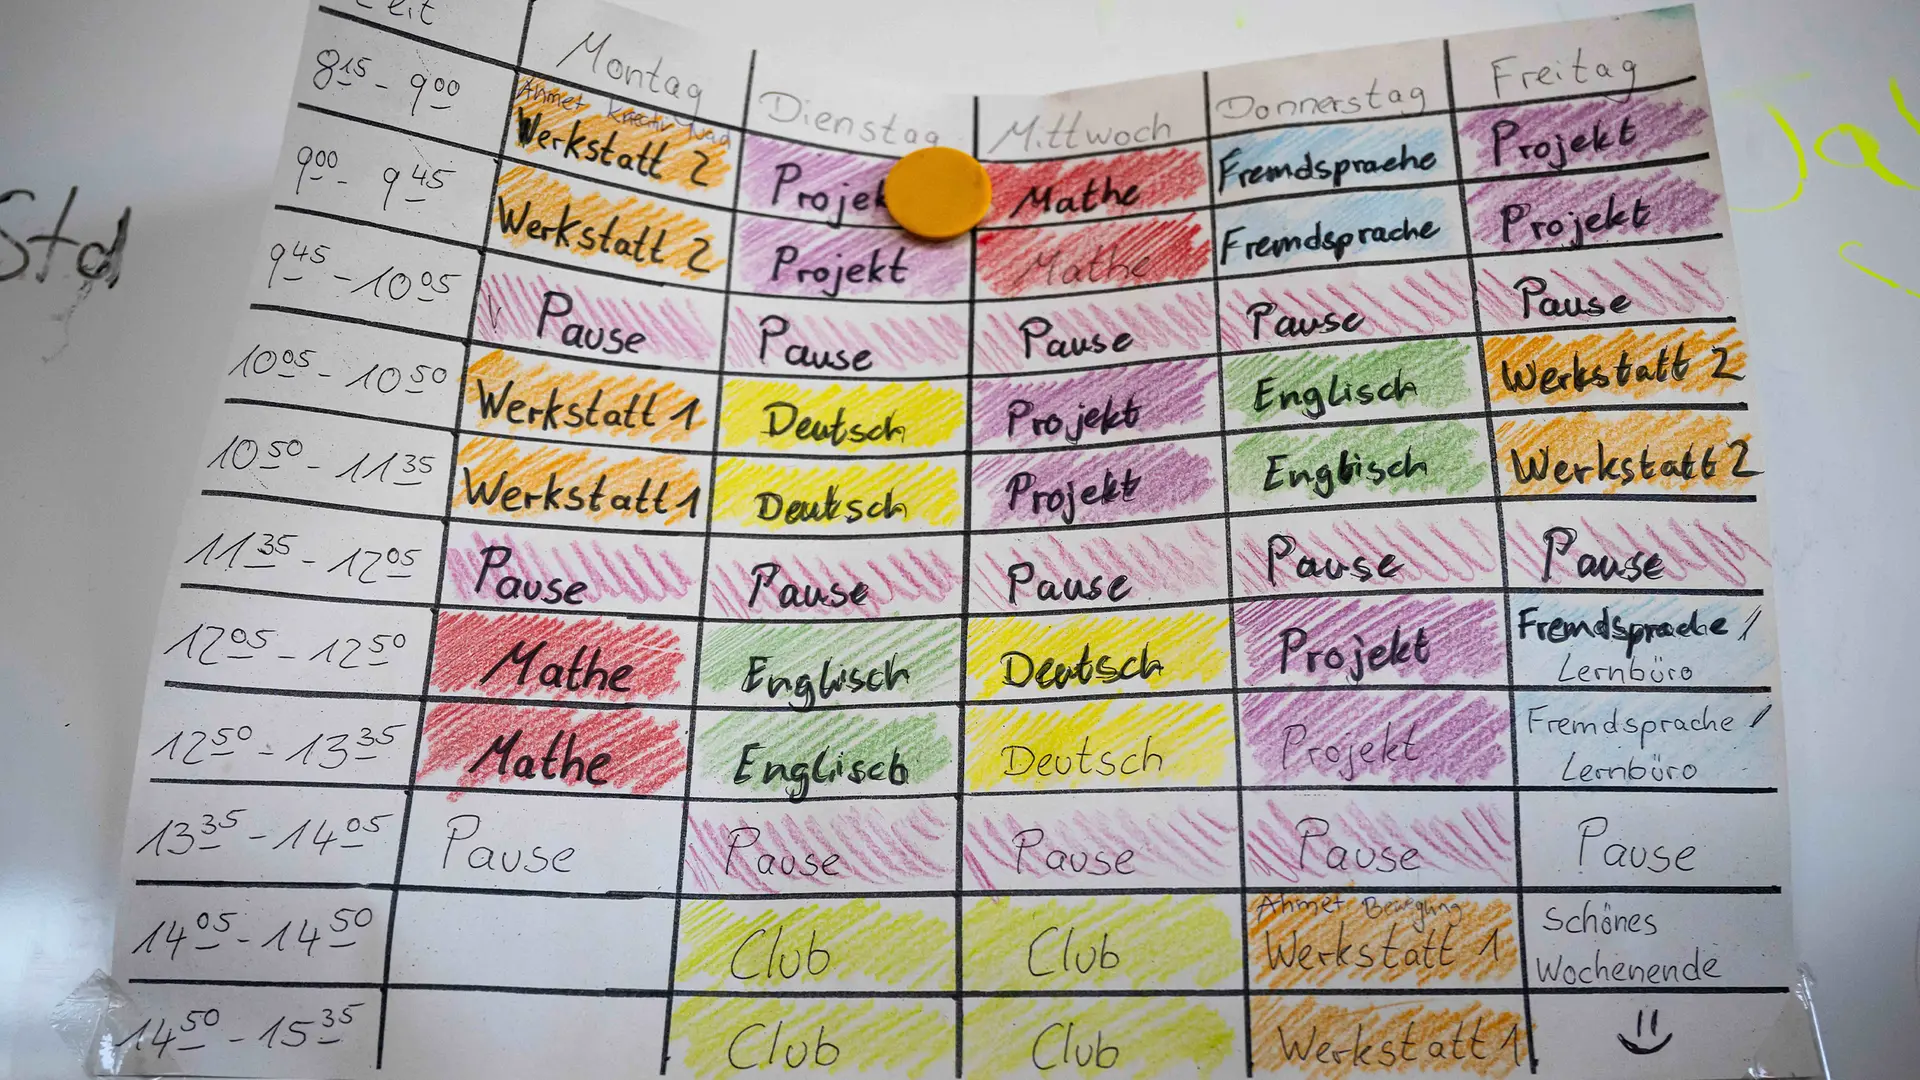 Zeit Montag Dienstag Mittwoch Donnerstag Freitag
815 - 900 Ahmet Kreativ Werkstatt 2 Projek Mathe Fremdsprache Projekt
900 - 945 Werkstatt 2 Projekt Mathe Fremdsprache Projekt
945 - 1005 Pause Pause Pause Pause Pause
1005 - 1050 Werkstatt 1 Deutsch Projekt Englisch Werkstatt 2
1050 - 1135 Werkstatt 1 Deutsch Projekt Englisch Werkstatt 2
1135 - 1205 Pause Pause Pause Pause Pause
1205 - 1250 Mathe Englisch Deutsch Projekt Fremdsprache /
Lernbüro
1250 - 1335 Mathe Englisch Deutsch Projekt Fremdsprache /
Lernbüro
1335 - 1405 Pause Pause Pause Pause Pause
1405 - 1450 Club Club Ahmet Bewegung Werkstatt 1 Schönes
Wochenende
1450 - 1535 Club Club Werkstatt 1
Std